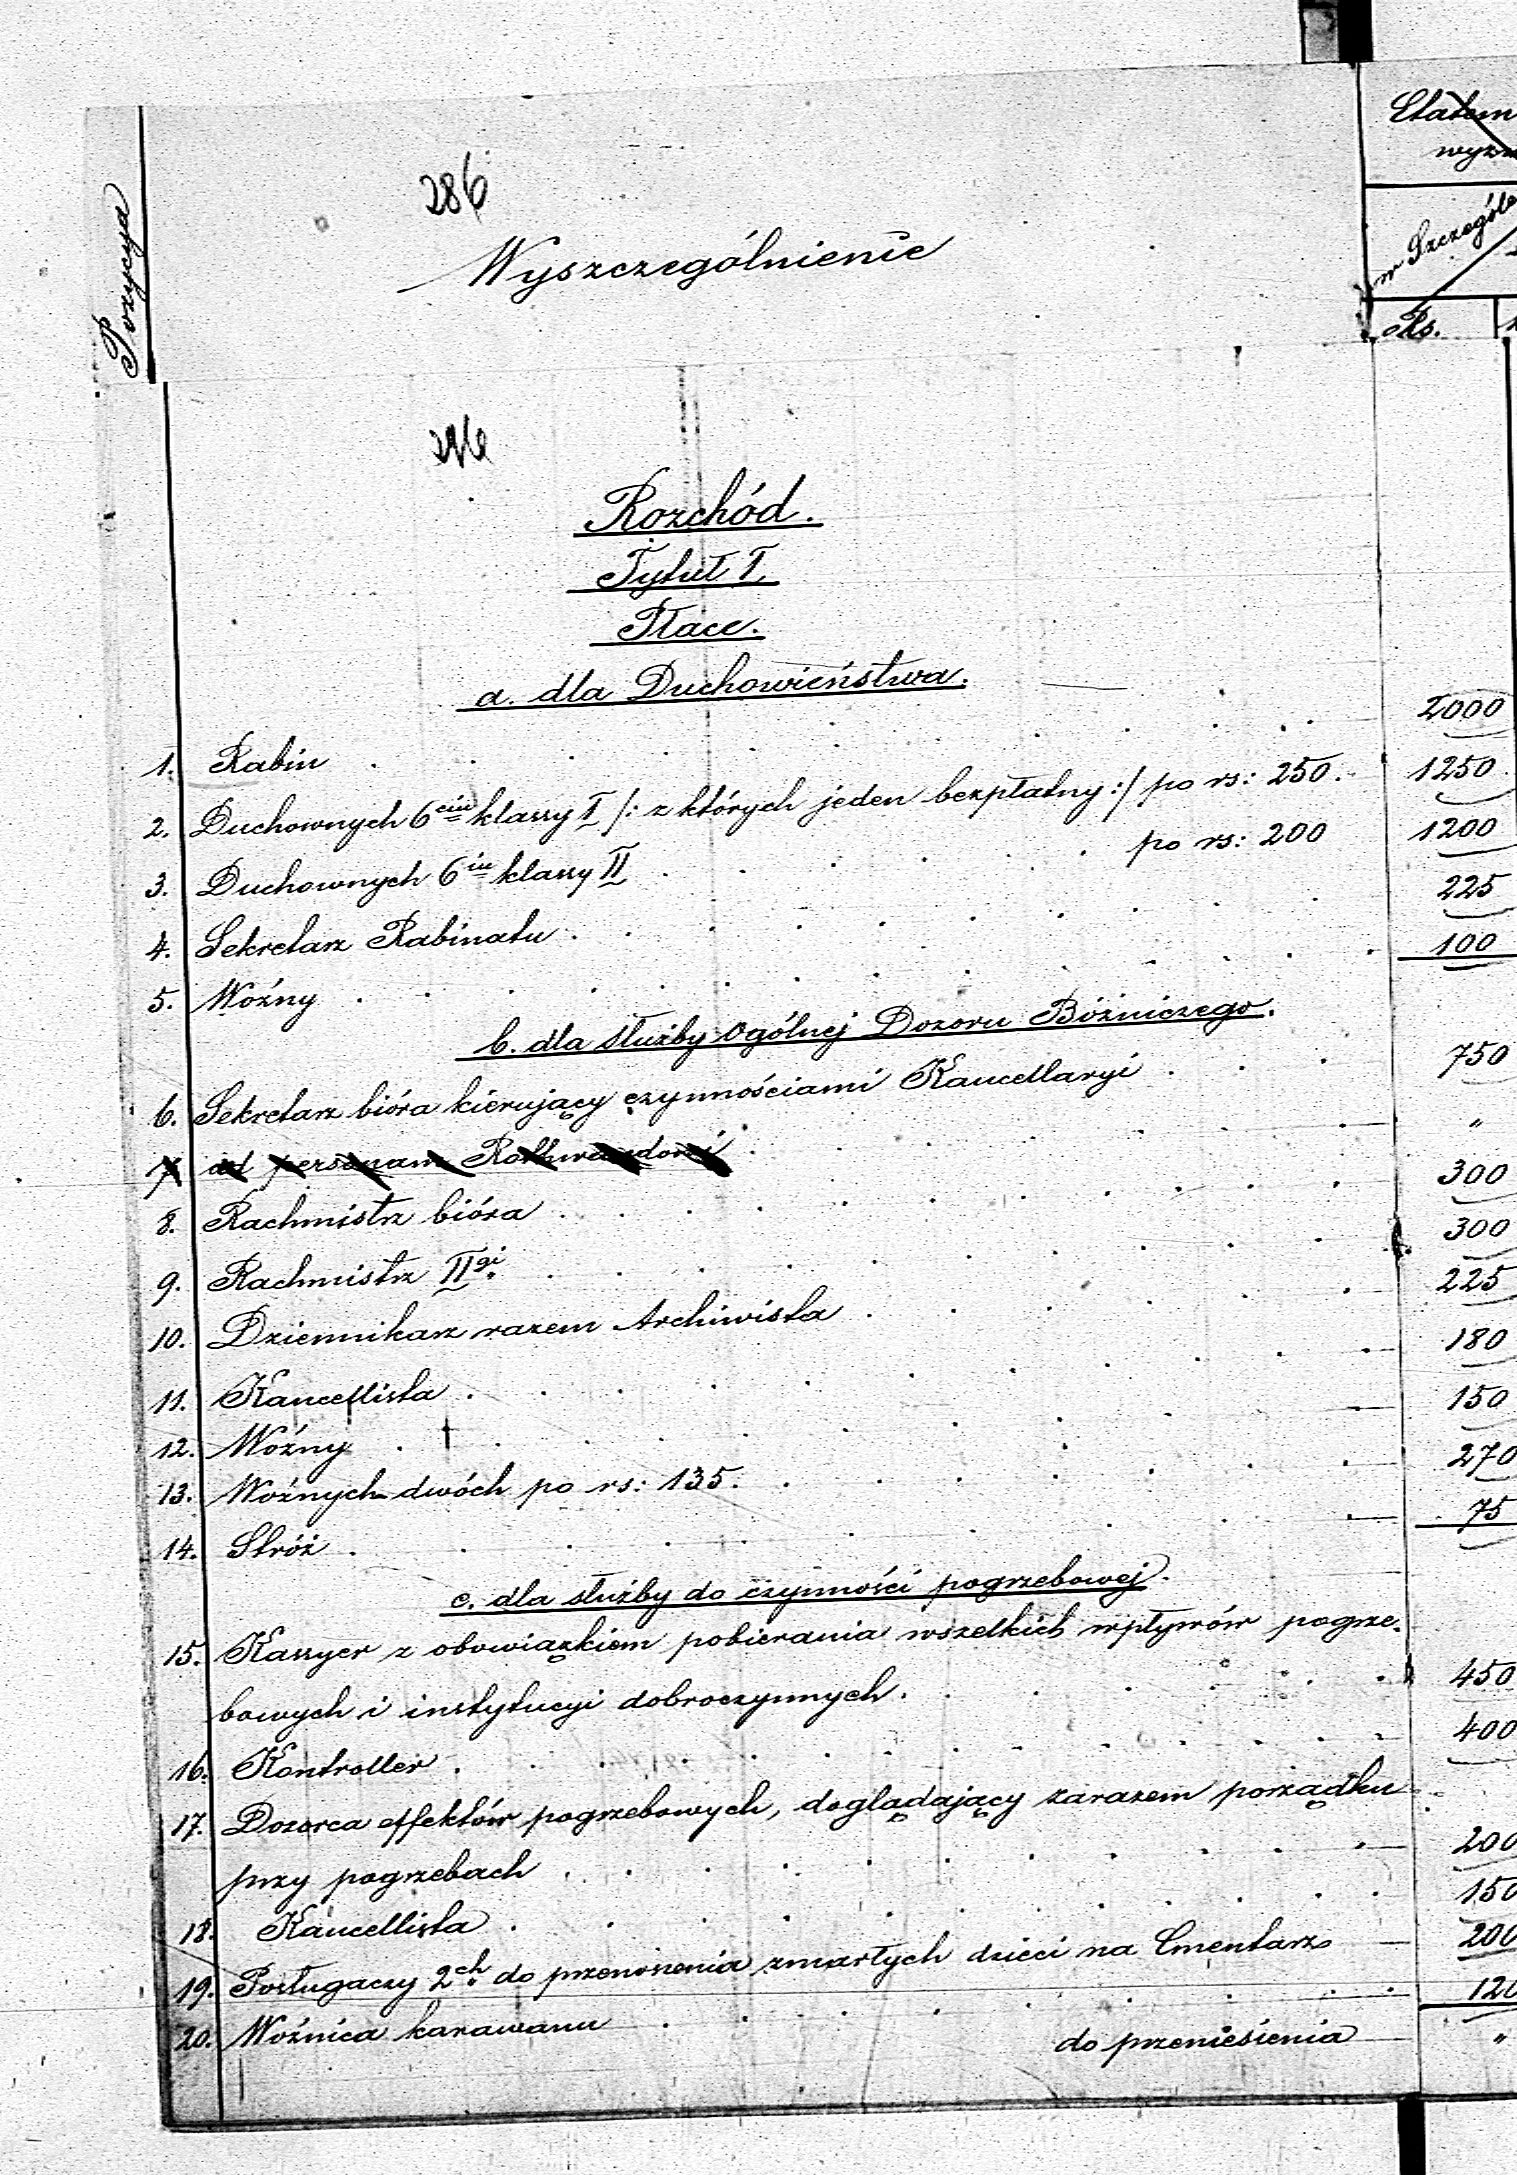 Etatem
286
Pozycya
Wyszczególnienie
w Szczególe
Rs.
Rozchód.
Tytuł I.
Płace.
a. dla Duchowieństwa.
1. Rabin 2000
2. Duchownych 6ciu klassy I /: z których jeden bezpłatny :/ po rs: 250. 1250
3. Duchownych 6iu klassy II po rs: 200 1200
4. Sekretarz Rabinatu 225
5. Woźny 100
b. dla służby Ogólnej Dozoru Bóżniczego.
6. Sekretarz bióra kierujący czynnościami Kancellaryi 750
7 ad personam "
8. Rachmistrz bióra 300
9. Rachmistrz IIgi 300
10. Dziennikarz razem Archiwista 225
11. Kancellista 180
12. Woźny 150
13. Woźnych dwóch po rs: 135. 270
14. Stróż 75
c. dla służby do czynności pogrzebowej.
15. Kassyer z obowiązkiem pobierania wszelkich wpływów pogrze-
bowych i instytucyi dobroczynnych. 450
16. Kontroller 400
17. Dozorca effektów pogrzebowych, doglądający zarazem porządku
przy pogrzebach 200
18. Kancellista 150
19. Posługaczy 2ch do przenoszenia zmarłych dzieci na Cmentarz 200
20. Woźnica karawanu 120
do przeniesienia "